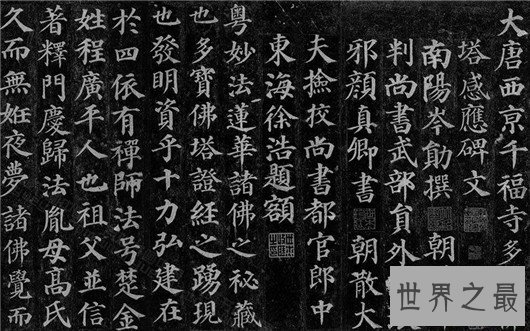 大唐西亰千福寺多
塔感應碑文
南陽岑勛撰 朝
判尚書武部負外
邪顏真卿書 朝散大
夫撿挍尚書都官郎中
東海徐浩題額
粵妙法蓮華諸佛之祕藏
也多寶佛塔證經之踴現
也發明資乎十力弘建在
於四依有禪師法号楚金
姓程廣平人也祖父並信
著釋門慶歸法胤母高氏
久而無姙夜夢諸佛覺而
世界之最